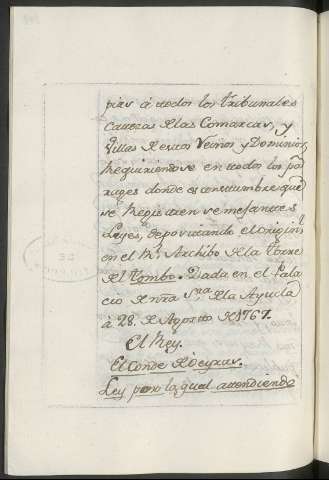 pias à todos los tribunales
Cavezas de las Comarcas, y
Villas de estos Reinos y Dominios,
Registrándose en todos los pa
rages donde es constumbre que
se registren semejantes
Leyes, depositando el origin.l
en el R.l Archibo de la Torre
del Tombo. Dada en el Pala
cio de nra S.ra de la Ayuda
à 28. de Agosto de 1767.
El Rey.
El Conde de Oeyras.
Ley por la qual atendiendo